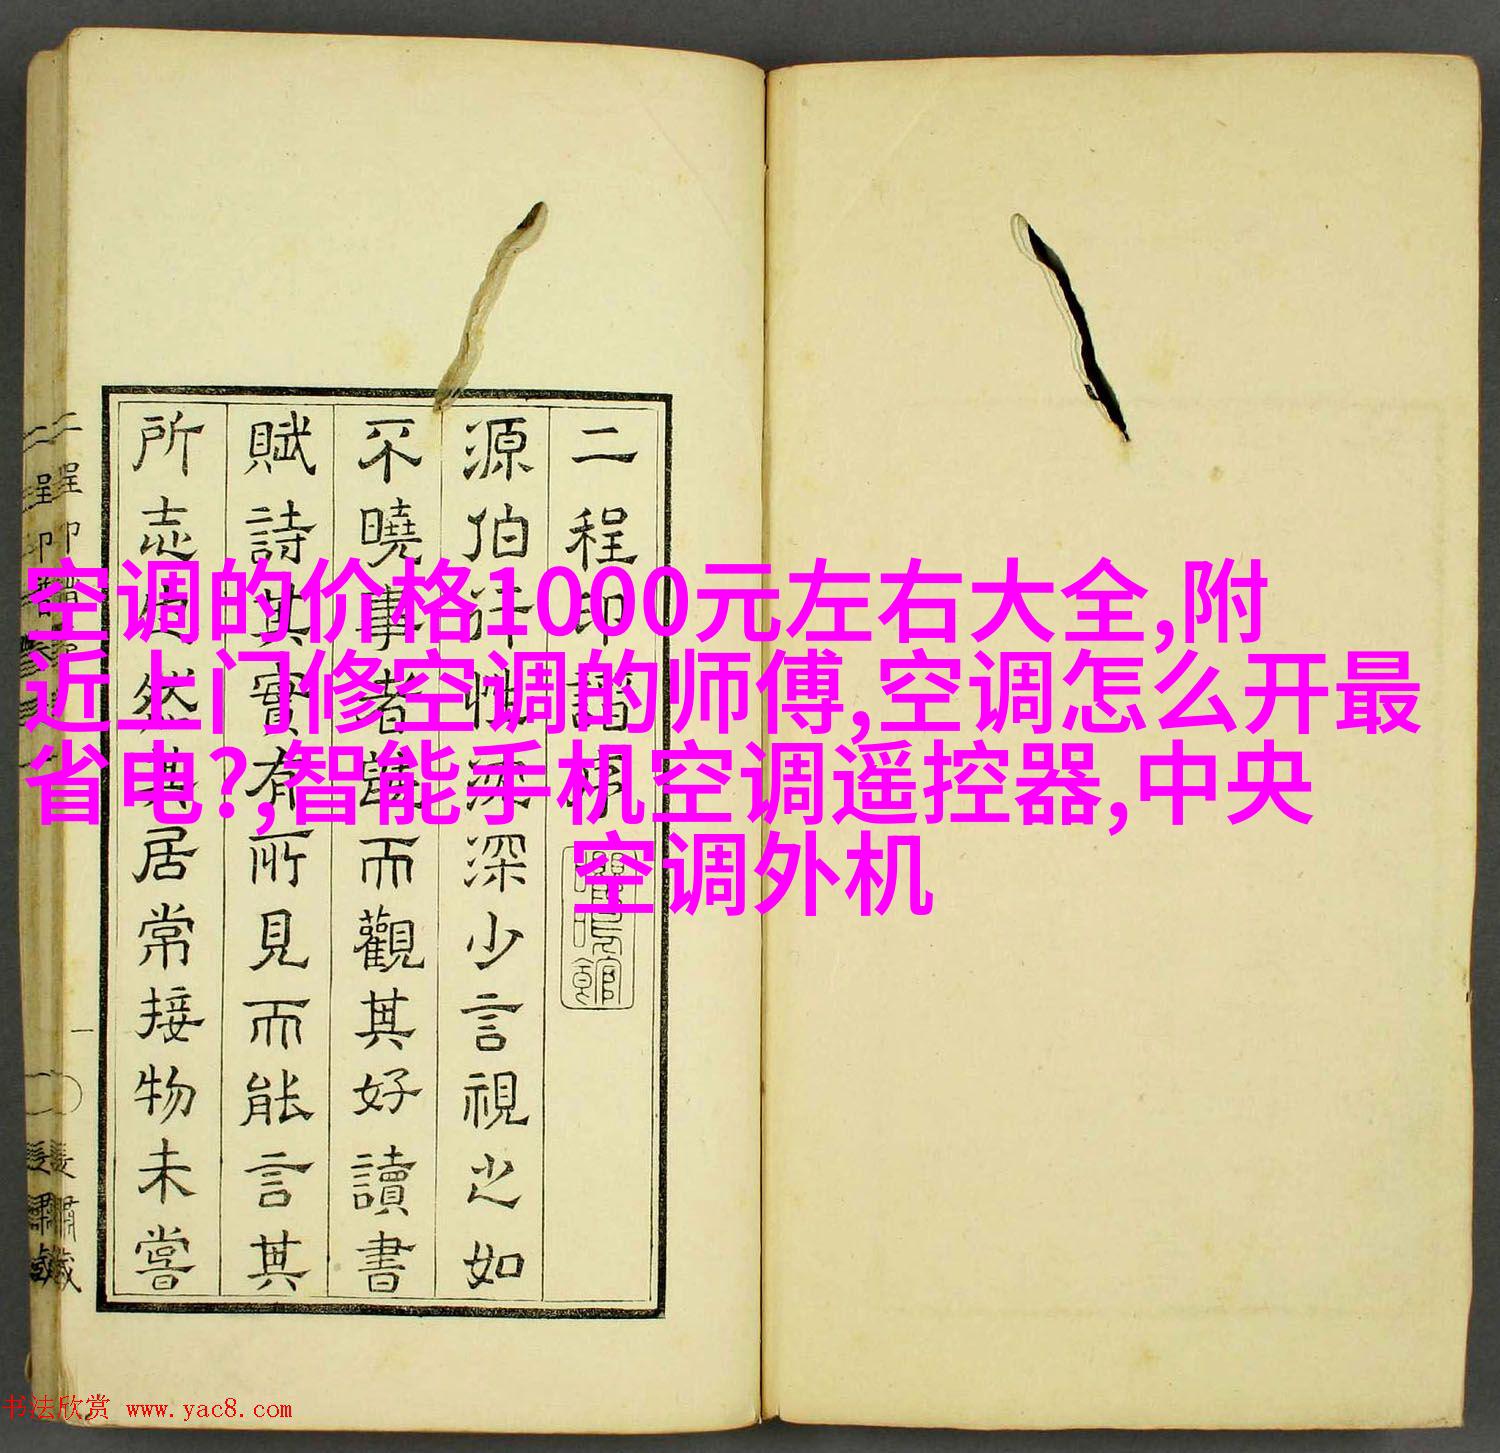 空调的价格1000元左右大全,附
近上门修空调的师傅,空调怎么开最
省电?,智能手机空调遥控器,中央
空调外机
二程印譜序
源伯行性沉深少言視之如
不曉事者
而觀其好讀書
賦詩其實有所見而能言其
所志
然其居常接物未嘗
书法欣赏 www.yac8.com